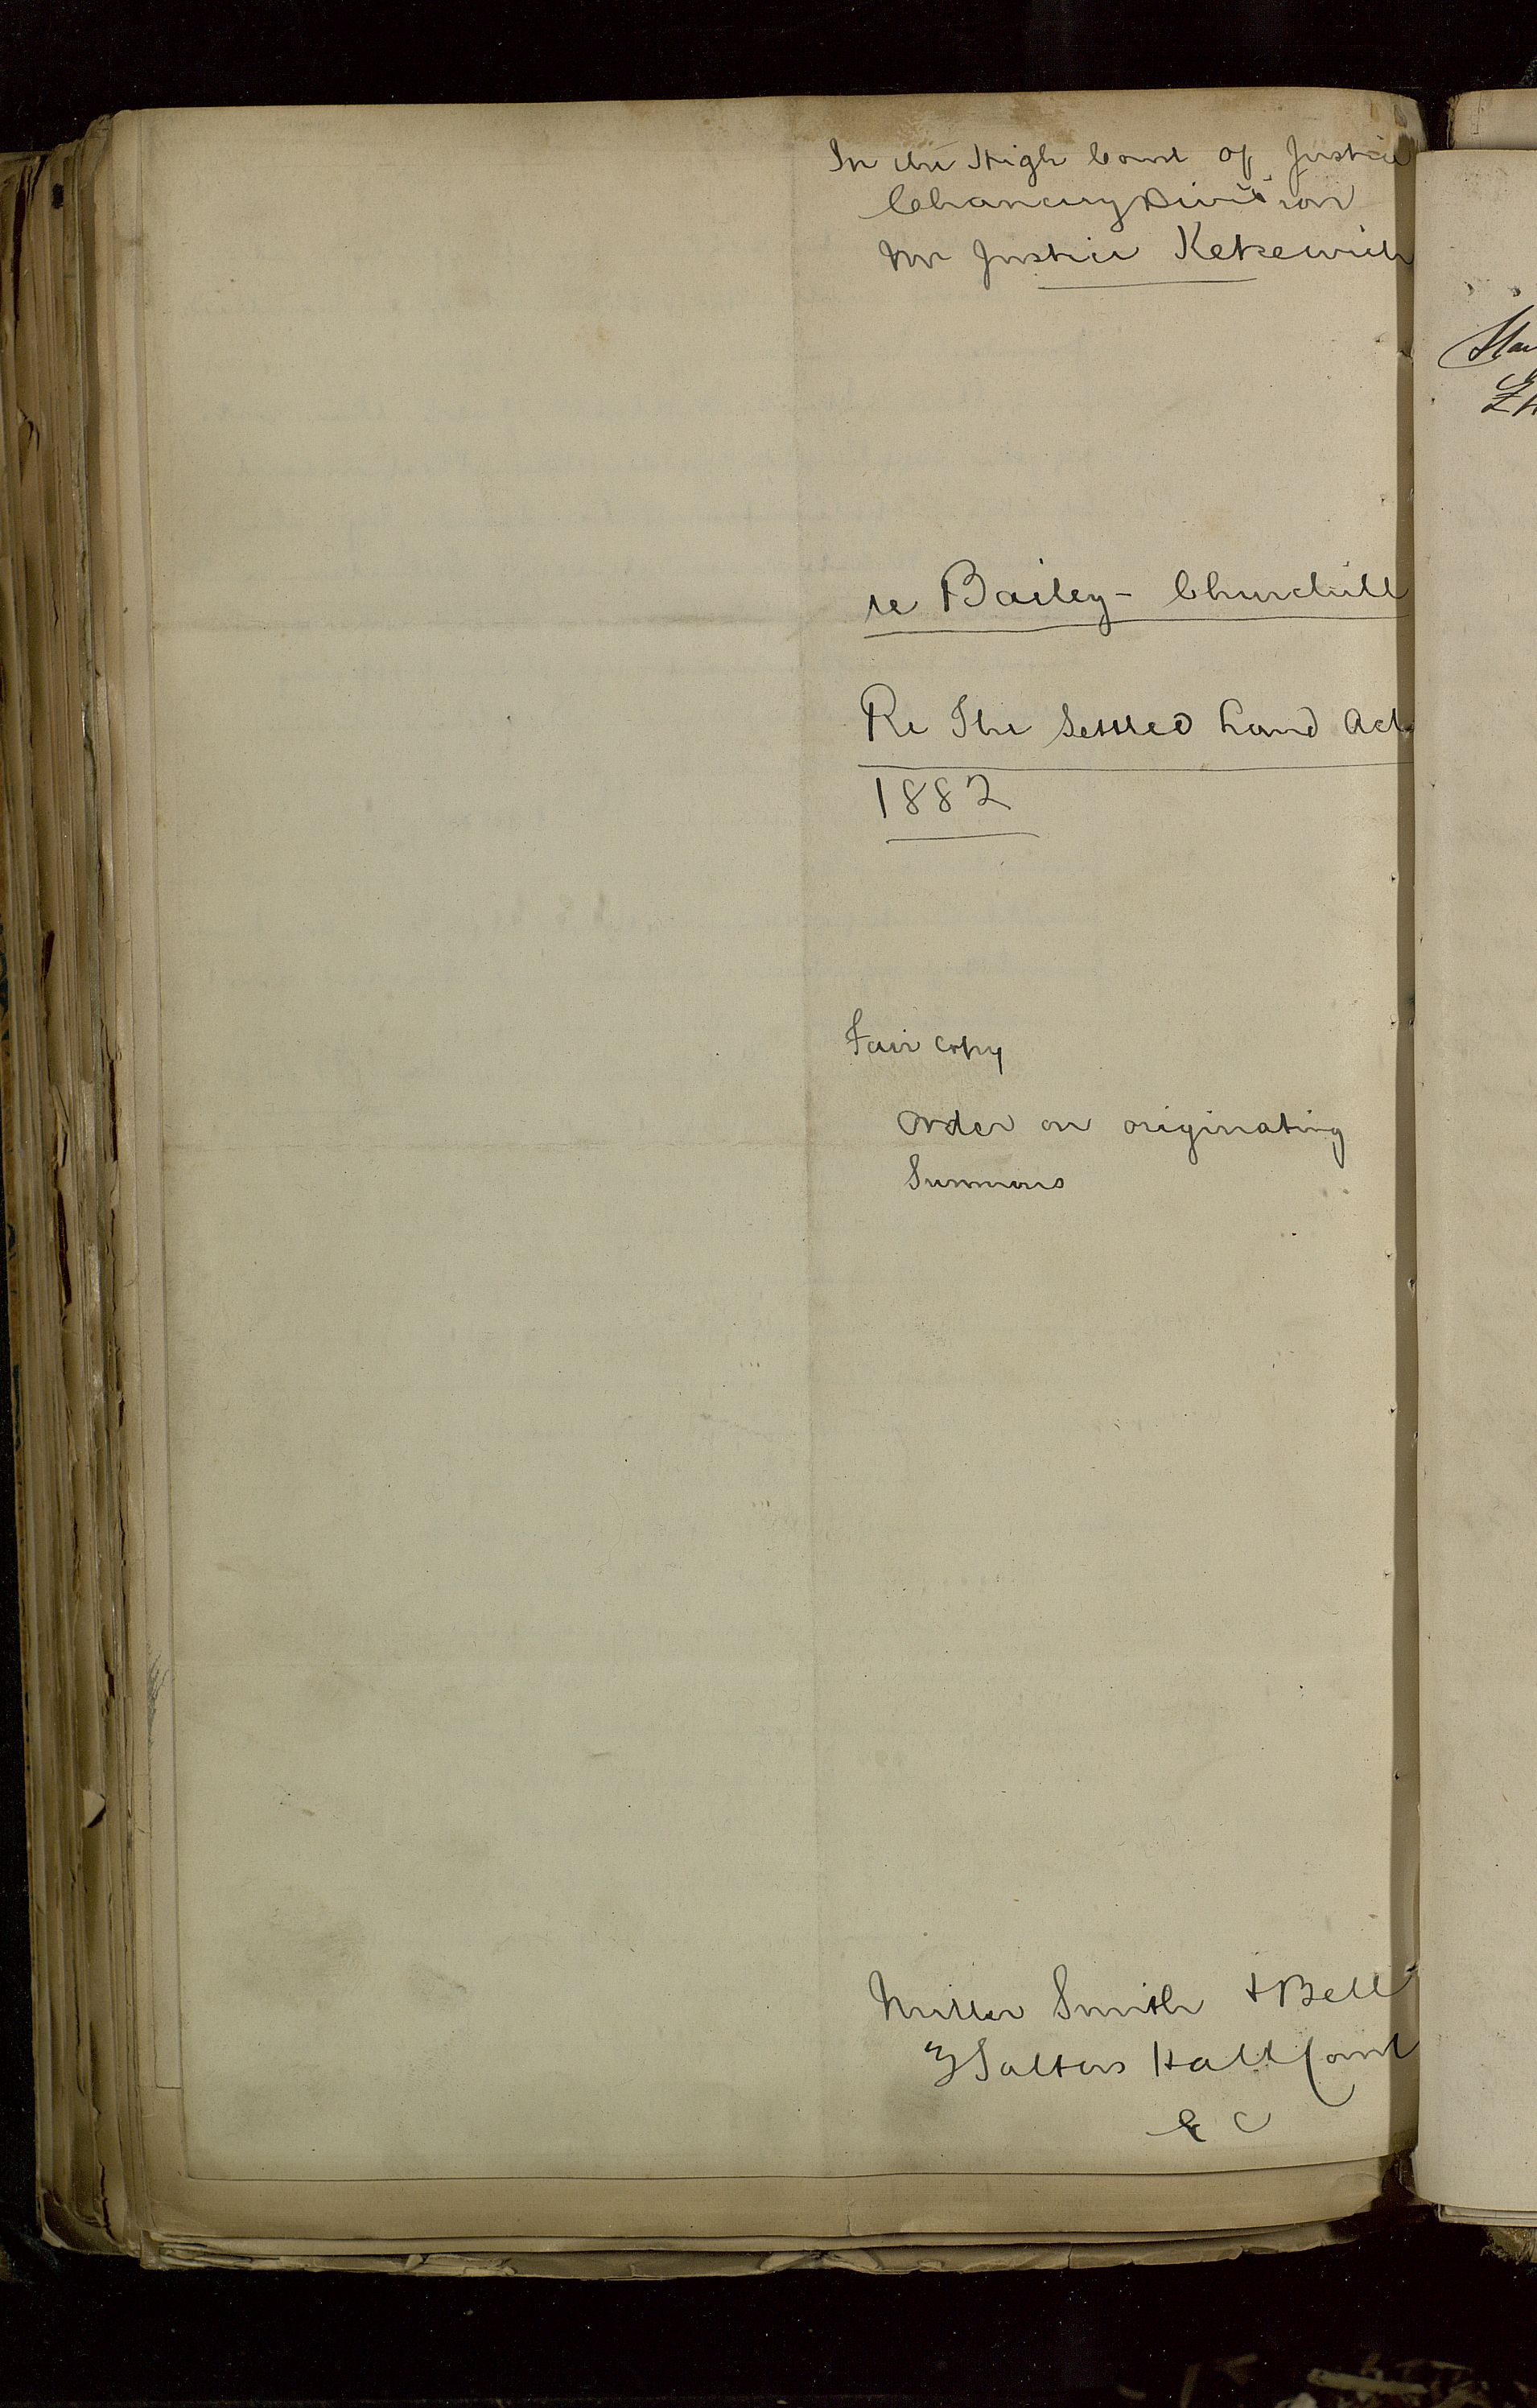 In the High Court of Justice
Chancery Division
Mr Justice Kekewich
re Bailey - Churchill
Re The Settled Land Act
1882
Fair copy
Order on originating
Summons
Miller Smith & Bell
3 Salters Hall Court
E C